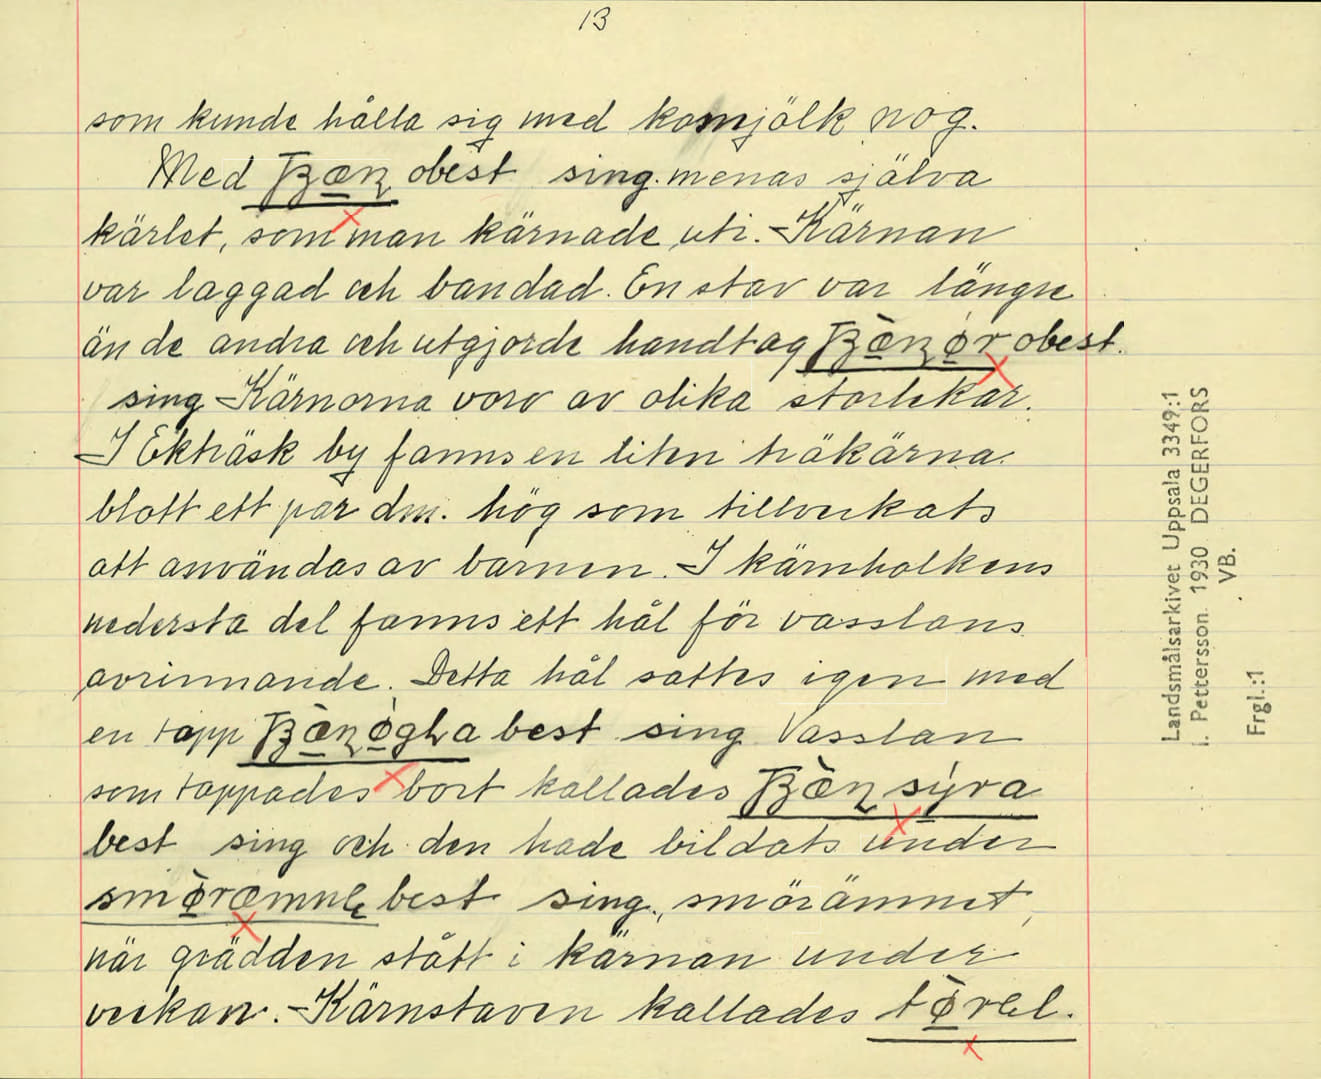 13
som kunde hålla sig med komjölk nog.
Med obest sing. menas själva
kärlet, som man kärnade uti. - Kärnan
var laggad och bandad. En stav var längre
än de andra och utgjorde handtag obest.
sing Kärnorna voro av olika storlekar.
I Ekträsk by fanns en liten träkärna
blott ett par dm. hög som tillverkats
att användas av barnen. I kärnholkens
nedersta del fanns ett hål för vasslans
avrinnande. Detta hål sattes igen med
en tapp best sing Vasslan
som tappades bort kallades
best sing och den hade bildats under
best sing., smörämnet,
när grädden stått i kärnan under
veckan. - Kärnstaven kallades
Landsmålsarkivet Uppsala 3349:1
I. Pettersson. 1930 DEGERFORS
VB.
Frgl.:1